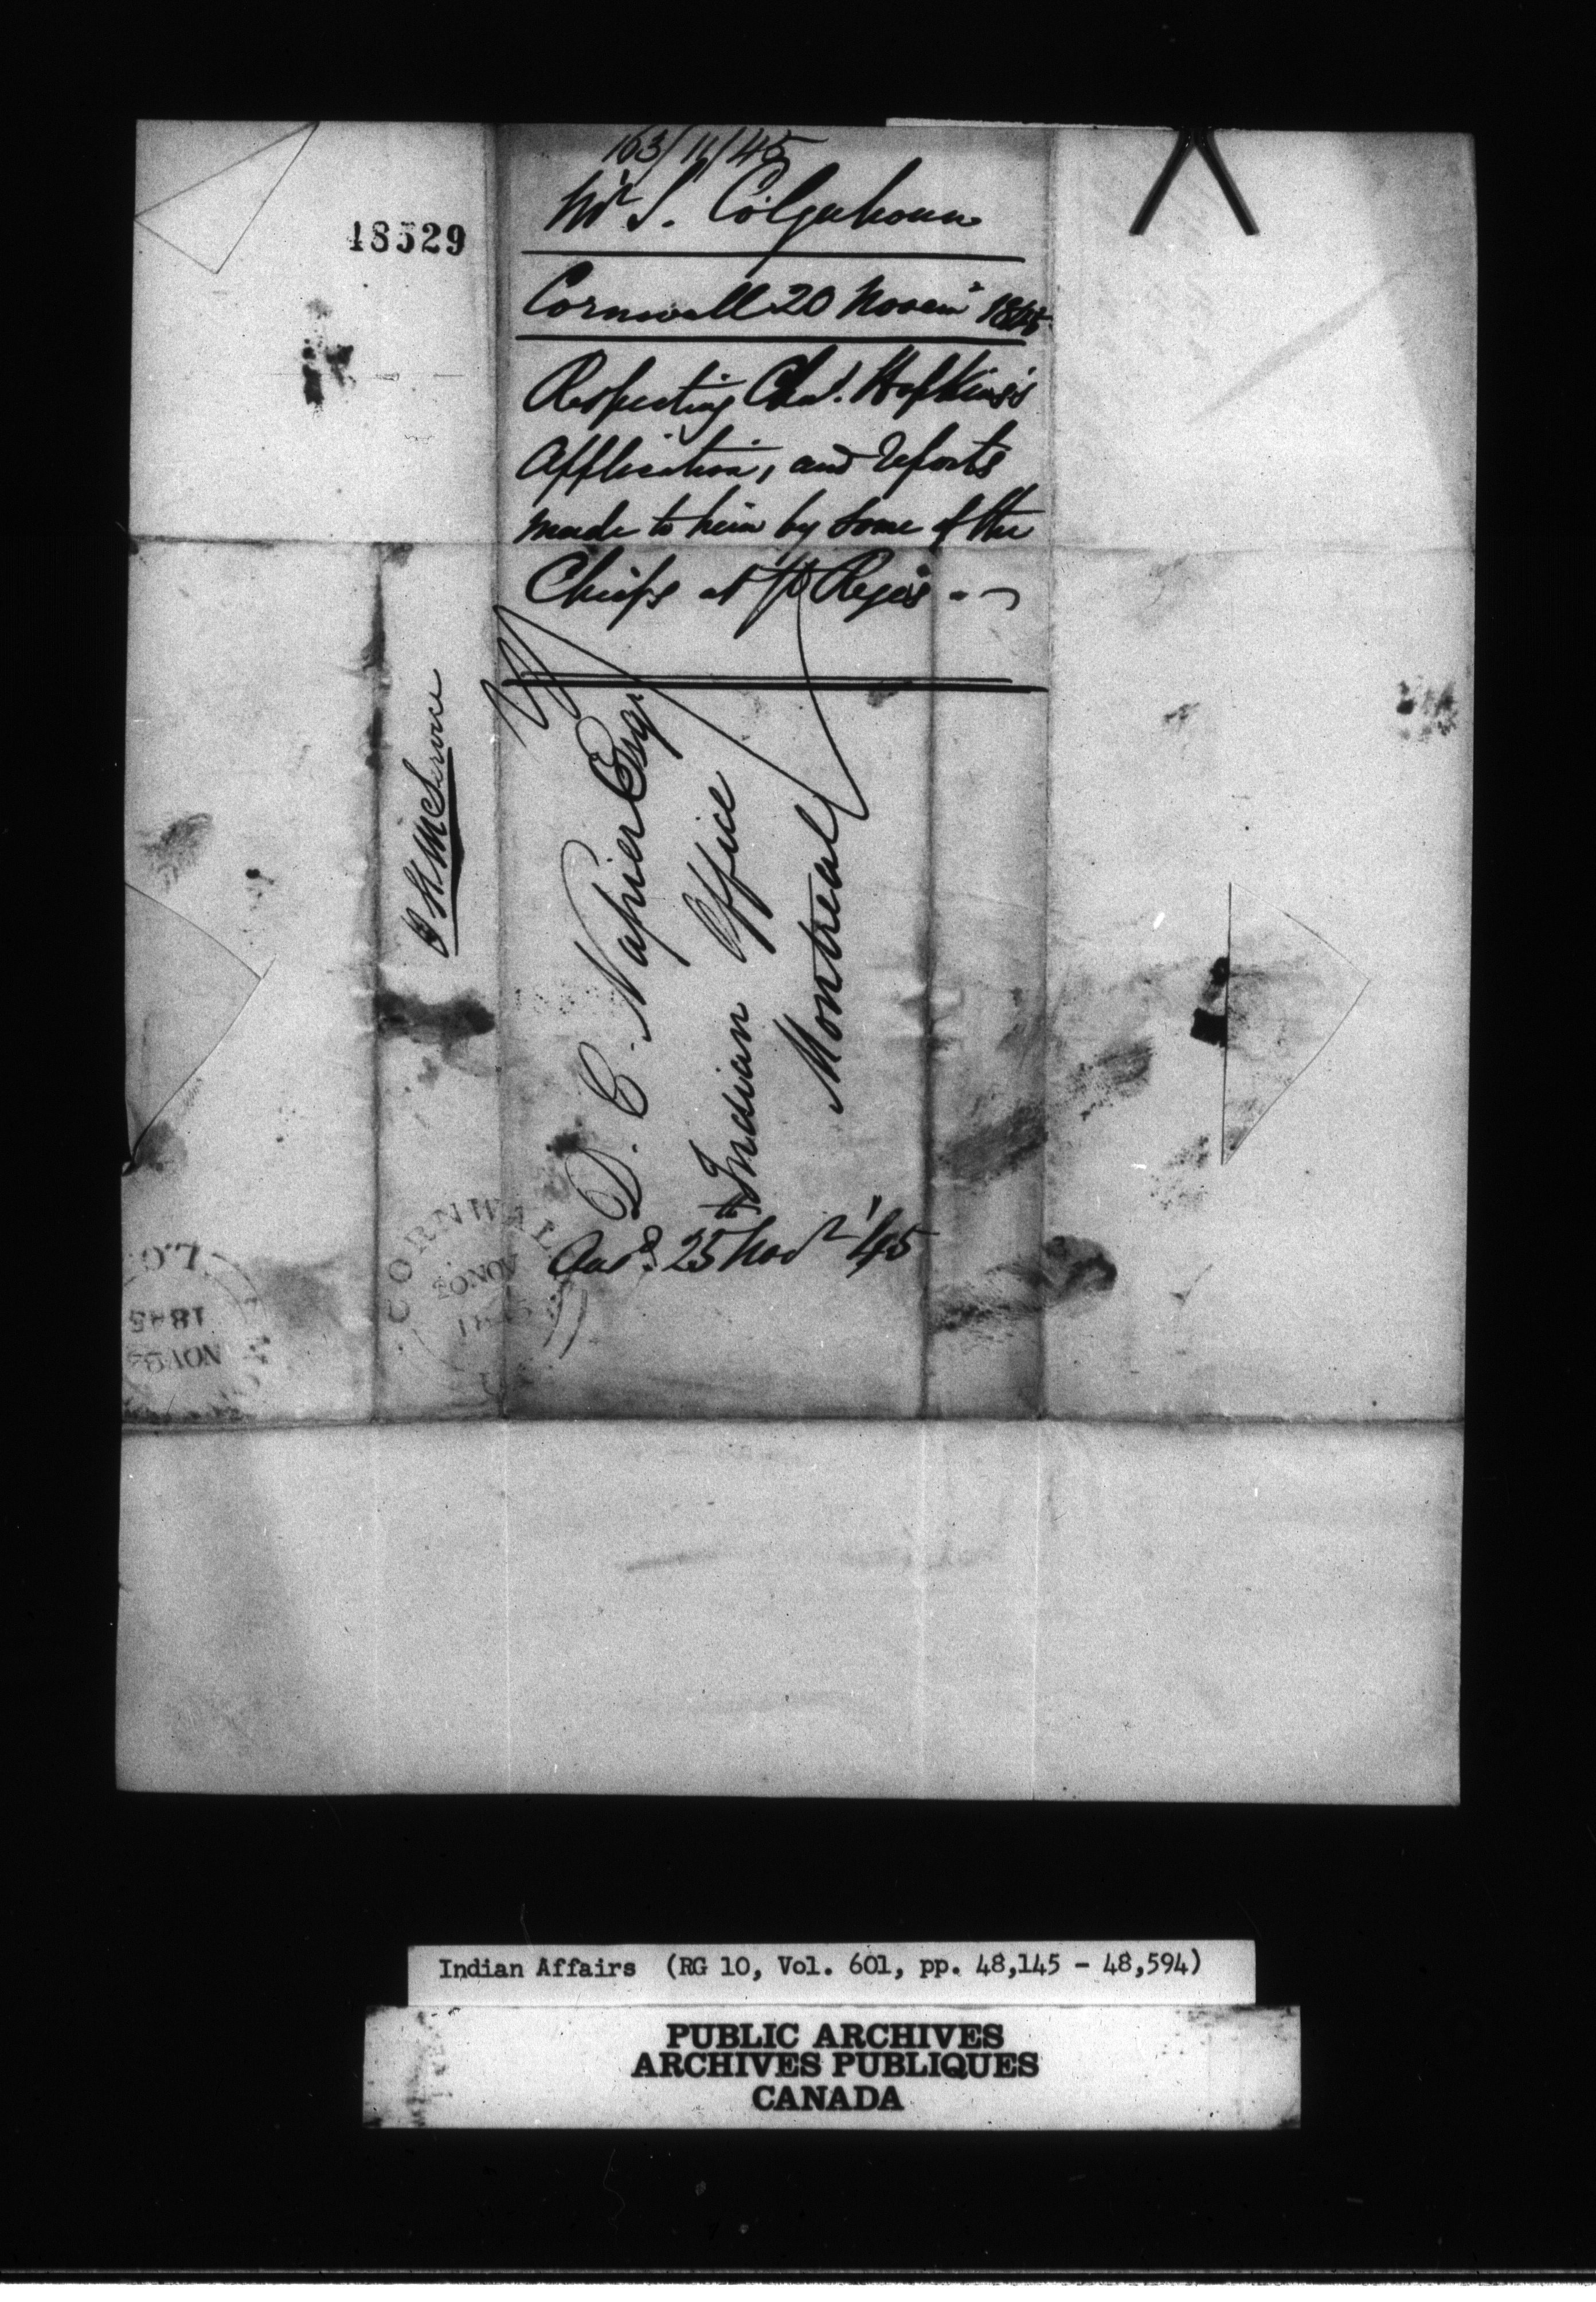 163/11/45
Mr. S. Colquhoun
48529
Cornwall 20 Novem 1845
Respecting Chas. Hopkins's
application, and reports
made to him by some of the
Chiefs at St Regis
O H M Service
D. C. Napier Esqr
Indian Office
Montreal
Ansd. 25th Novr '45
CORNWALL
20 NOV
1845
L.C.
NOV
1845
Indian Affairs (RG 10, Vol. 601, pp. 48,145 - 48,594)
PUBLIC ARCHIVES
ARCHIVES PUBLIQUES
CANADA